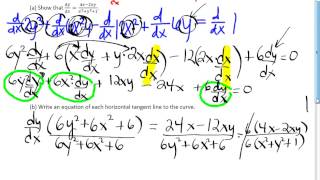 (a) Show that dy/dx = (4x−2xy)/(x²+y²+1)
d/dx 2y³ + d/dx 6x²y − d/dx 12x² + d/dx 6y = d/dx 1
6y² dy/dx + 6(x² dy/dx + y·2x dx/dx) − 12(2x dx/dx) + 6 dy/dx = 0
6y² dy/dx + 6x² dy/dx + 12xy − 24x + 6 dy/dx = 0
(b) Write an equation of each horizontal tangent line to the curve.
dy/dx (6y²+6x²+6)/(6y²+6x²+6) = (24x−12xy)/(6y²+6x²+6) = 6(4x−2xy)/6(x²+y²+1)